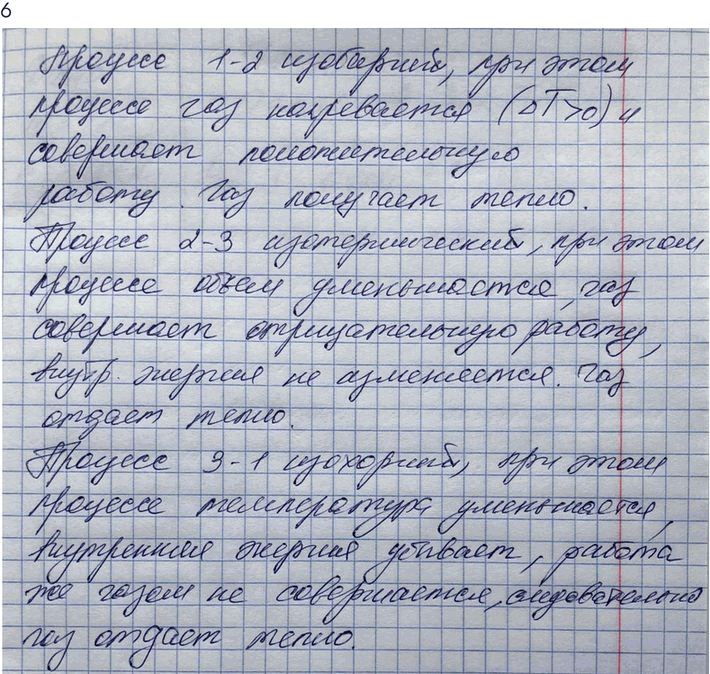 6
Процесс 1-2 изобарный, при этом
процессе газ нагревается (ΔT>0) и
совершает положительную
работу. Газ получает тепло.
Процесс 2-3 изотермический, при этом
процессе объем уменьшается, газ
совершает отрицательную работу,
внутр. энергия не изменяется. Газ
отдает тепло.
Процесс 3-1 изохорный, при этом
процессе температура уменьшается,
внутренняя энергия убывает, работа
же газом не совершается, следовательно
газ отдает тепло.